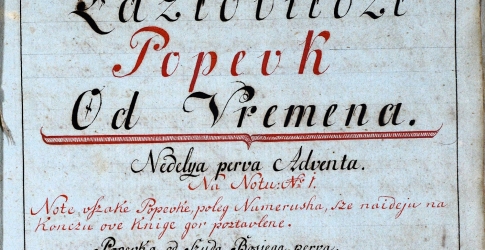 Popevk
Od Vremena.
Nedelya perva Adventa.
Na Notu: Nº 1.
Note vszake Popevke, poleg Numerusha, sze naideju na
Konczu ove Knige gor posztavlene.
Popevka od Szuda Bosjega perva